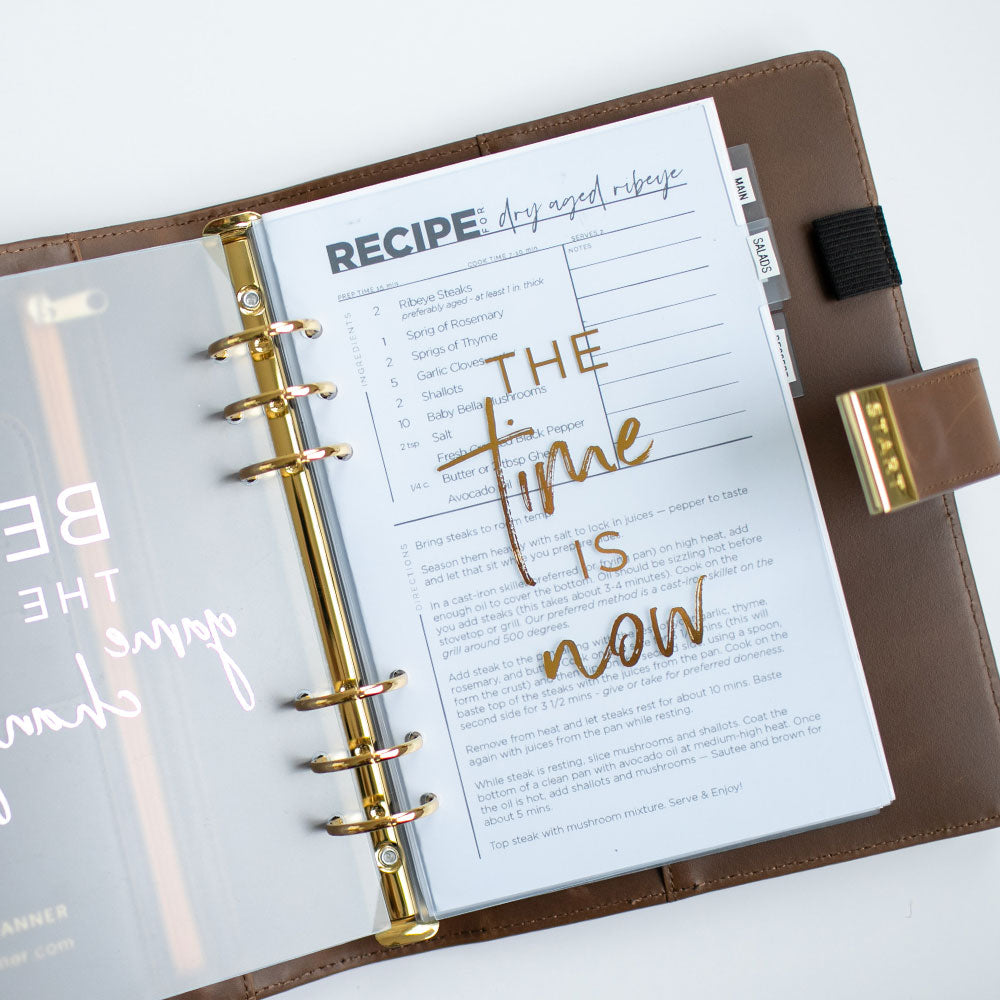 RECIPE FOR dry aged ribeye
PREP TIME 15 min COOK TIME 7-15 min SERVES 2
INGREDIENTS
NOTES
2 Ribeye Steaks
preferably aged - at least 1 in. thick
1 Sprig of Rosemary
2 Sprigs of Thyme
5 Garlic Cloves
2 Shallots
10 Baby Bella Mushrooms
2 tsp Salt
Fresh Black Pepper
1/4 c. Butter or 2 tbsp Ghee
Avocado Oil
THE
time
IS
now
DIRECTIONS
Bring steaks to room temp
Season them heavily with salt to lock in juices — pepper to taste
and let that sit while you prepare
In a cast-iron skillet (preferred) or frying pan) on high heat, add
enough oil to cover the bottom. Oil should be sizzling hot before
you add steaks (this takes about 3-4 minutes). Cook on the
stovetop or grill. Our preferred method is a cast-iron skillet on the
grill around 500 degrees.
Add steak to the pan along with garlic, thyme,
rosemary, and butter. Cook mins (this will
form the crust) and then second side using a spoon,
baste top of the steaks with the juices from the pan. Cook on the
second side for 3 1/2 mins - give or take for preferred doneness.
Remove from heat and let steaks rest for about 10 mins. Baste
again with juices from the pan while resting.
While steak is resting, slice mushrooms and shallots. Coat the
bottom of a clean pan with avocado oil at medium-high heat. Once
the oil is hot, add shallots and mushrooms — Sautee and brown for
about 5 mins.
Top steak with mushroom mixture. Serve & Enjoy!
MAIN
SALADS
DESSERT
START
BE
THE
game
chan
ANNER
ner.com